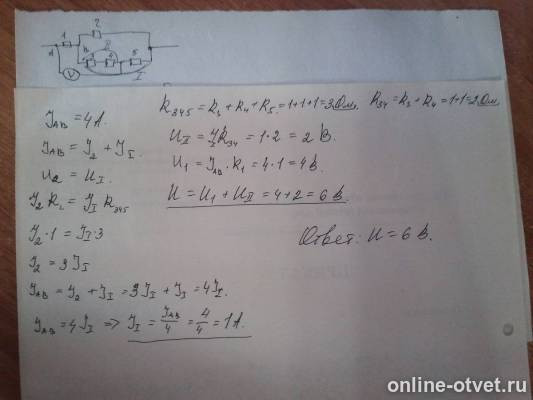 1 2
A B 3 4 5
V I
J_AB = 4A.
J_AB = J_2 + J_I.
U_2 = U_I
J_2 R_2 = J_I R_345
J_2 · 1 = J_I · 3
J_2 = 3J_I
J_AB = J_2 + J_I = 3J_I + J_I = 4J_I.
J_AB = 4J_I => J_I = J_AB/4 = 4/4 = 1A.
R_345 = R_3 + R_4 + R_5 = 1+1+1 = 3 Ом. R_34 = R_3 + R_4 = 1+1 = 2 Ом.
U_II = J_I R_34 = 1·2 = 2 В.
U_1 = J_AB · R_1 = 4·1 = 4 В.
U = U_1 + U_II = 4+2 = 6 В.
Ответ: U = 6 В.
online-otvet.ru